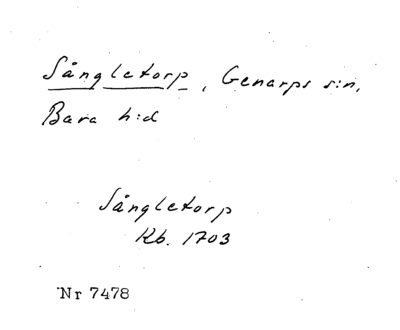 Sångletorp, Genarps s:n,
Bara h:d
Sångletorp
Kb. 1703
Nr 7478